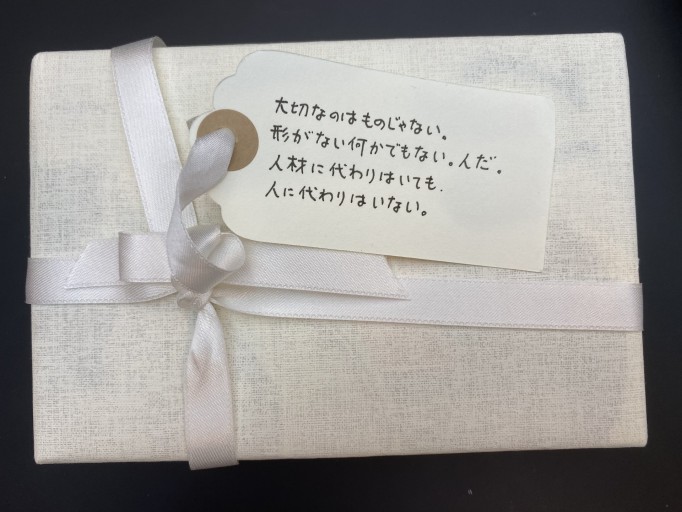 大切なのはものじゃない。
形がない何かでもない。人だ。
人材に代わりはいても、
人に代わりはいない。